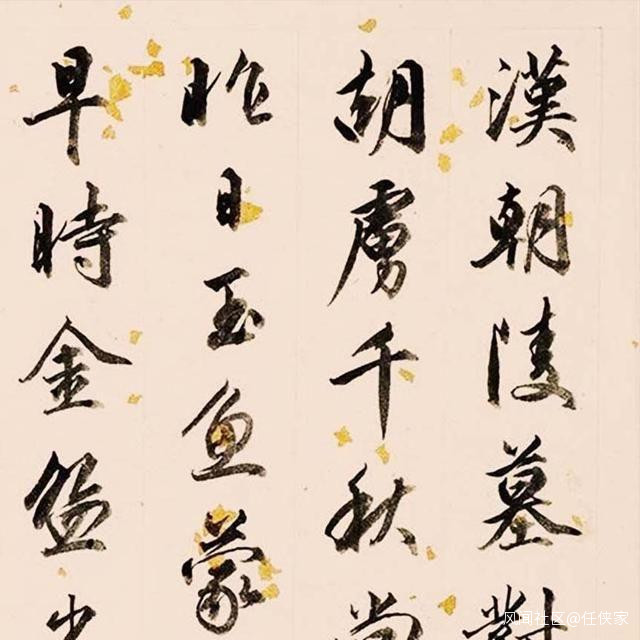 漢朝陵墓對
胡虜千秋尚
昨日玉魚蒙
早時金盌出
风闻社区@任侠家